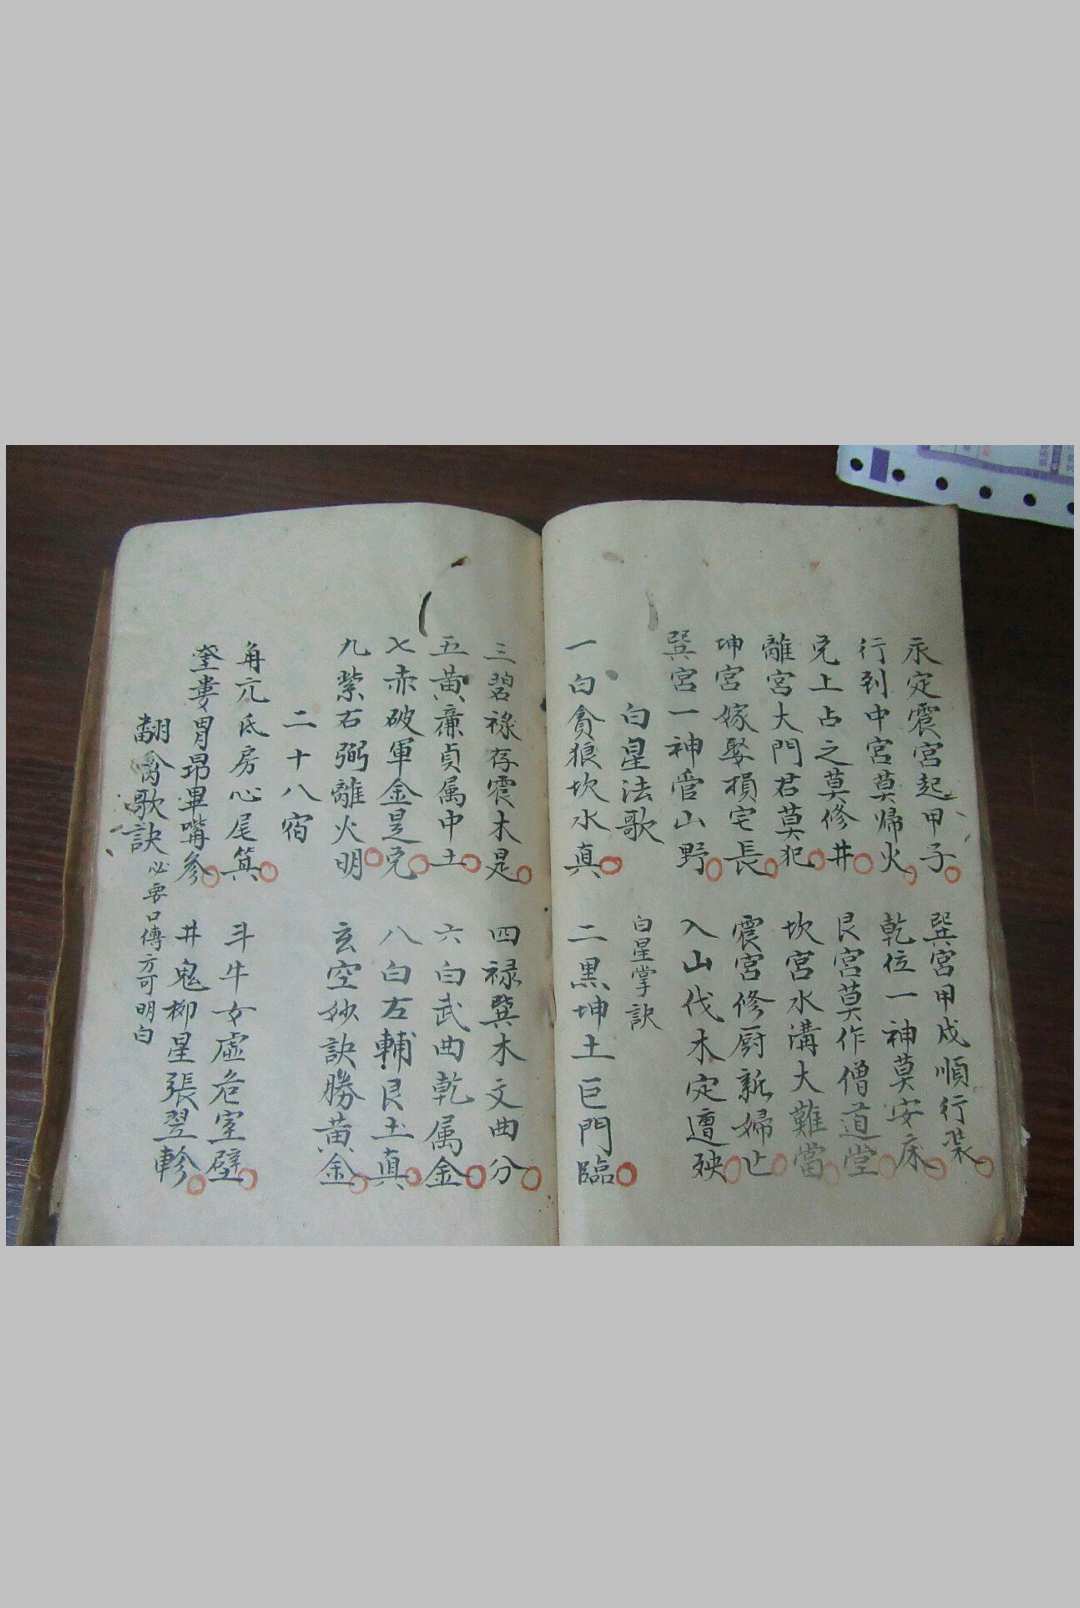 永定震宮起甲子 巽宮甲戍順行裝
行到中宮莫帰火 乾位一神莫安床
兌上占之莫修井 艮宮莫作僧道堂
離宮大門君莫犯 坎宮水溝大難當
坤宮嫁娶損宅長 震宮修厨新婦亡
巽宮一神管山野 入山伐木定遭殃
白星法歌 白星掌訣
一白貪狼坎水真 二黑坤土巨門臨
三碧祿存震木是 四祿巽木文曲分
五黃廉貞属中土 六白武曲乾属金
七赤破軍金是兌 八白左輔艮土真
九紫右弼離火明 玄空妙訣勝黃金
二十八宿
角亢氐房心尾箕 斗牛女虛危室壁
奎婁胃昴畢嘴參 井鬼柳星張翌軫
翻禽歌訣 必要口傳方可明白